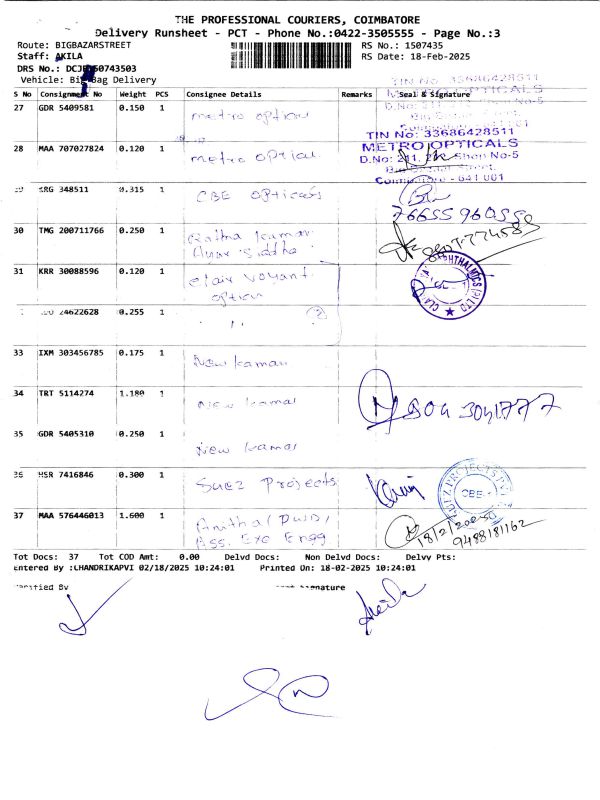 THE PROFESSIONAL COURIERS, COIMBATORE
Delivery Runsheet - PCT - Phone No.:0422-3505555 - Page No.:3
Route: BIGBAZARSTREET RS No.: 1507435
Staff: AKILA RS Date: 18-Feb-2025
DRS No.: 50743503
Vehicle: Bag Delivery
TIN No: 33686428511
S No Consignment No Weight PCS Consignee Details Remarks Seal & Signature
27 GDR 5409581 0.150 1 metro option
TIN No: 33686428511
28 MAA 707027824 0.120 1 metro optical METRO OPTICALS
D.No: 211, Shop No-5
Coimbatore - 641 001
SRG 348511 0.315 1 CBE opticals
30 TMG 200711766 0.250 1 Rathna kumar
31 KRR 30088596 0.120 1 clair voyant
option
24622628 0.255 1 " 2
33 IXM 303456785 0.175 1 New kamal
34 TRT 5114274 1.180 1 New kamal
35 GDR 5405310 0.250 1 New kamal
36 HSR 7416846 0.300 1 Suez Projects
37 MAA 576446013 1.600 1 Anitha / PWD/
Ass. Exe Engg
9488181162
Tot Docs: 37 Tot COD Amt: 0.00 Delvd Docs: Non Delvd Docs: Delvy Pts:
Entered By :CHANDRIKAPVI 02/18/2025 10:24:01 Printed On: 18-02-2025 10:24:01
Verified By Signature
Akila